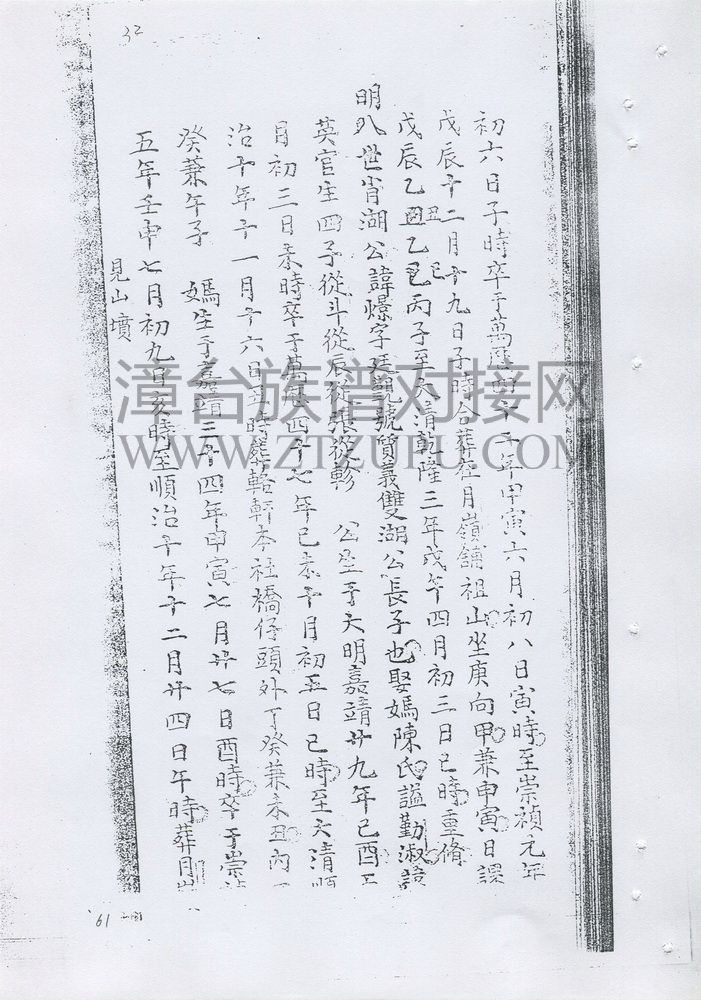 32
初六日子時卒于萬曆四十二年甲寅六月初八日寅時至崇禎元年
戊辰十二月十九日子時合葬在月嶺舖祖山坐庚向甲兼申寅日課
戊辰乙丑乙巳丙子至大清乾隆三年戊午四月初三日巳時重脩
明八世肖湖公諱憬字廷號質義雙湖公長子也娶媽陳氏謚勤淑諱
英官生四子從斗從辰從張從軫 公生于大明嘉靖廿九年己酉
月初三日未時卒于萬曆四十七年己未十月初五日巳時至大清順
治十年十一月十六日丑時葬輅軒本社橋仔頭外丁癸兼未丑內
癸兼午子 媽生于嘉靖三十四年甲寅七月廿七日酉時卒于崇
五年壬申七月初九日亥時至順治十年十二月廿四日午時葬月
見山墳
61
漳台族谱对接网
WWW.ZTZUPU.COM